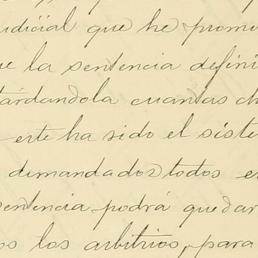 judicial que he promo
ue la sentencia defini
tárdandola cuandas ch
este ha sido el siste
demandados todos e
sentencia podrá quedar
os los arbitrios, para